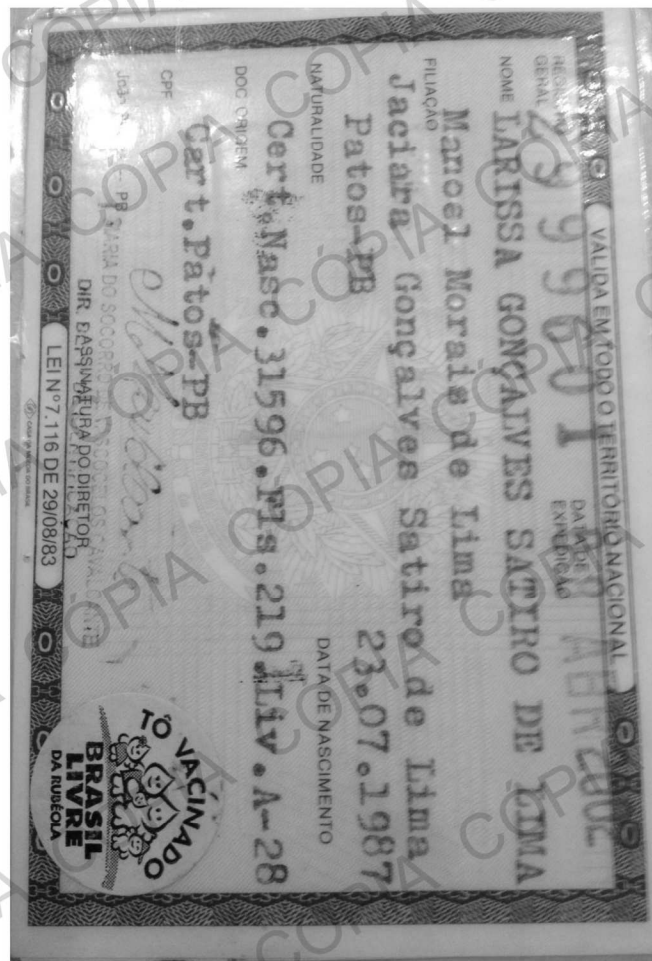 VÁLIDA EM TODO O TERRITÓRIO NACIONAL
REGISTRO GERAL 2999601 DATA DE EXPEDIÇÃO
NOME LARISSA GONÇALVES SATIRO DE LIMA
FILIAÇÃO Manoel Morais de Lima
Jaciara Gonçalves Satiro de Lima
NATURALIDADE Patos-PB DATA DE NASCIMENTO 23.07.1987
DOC. ORIGEM Cert.Nasc.31596.Fls.219.Liv.A-28
Cart.Patos-PB
CPF
PB
ASSINATURA DO DIRETOR
LEI Nº 7.116 DE 29/08/83
TÔ VACINADO
BRASIL
LIVRE
DA RUBÉOLA
CÓPIA